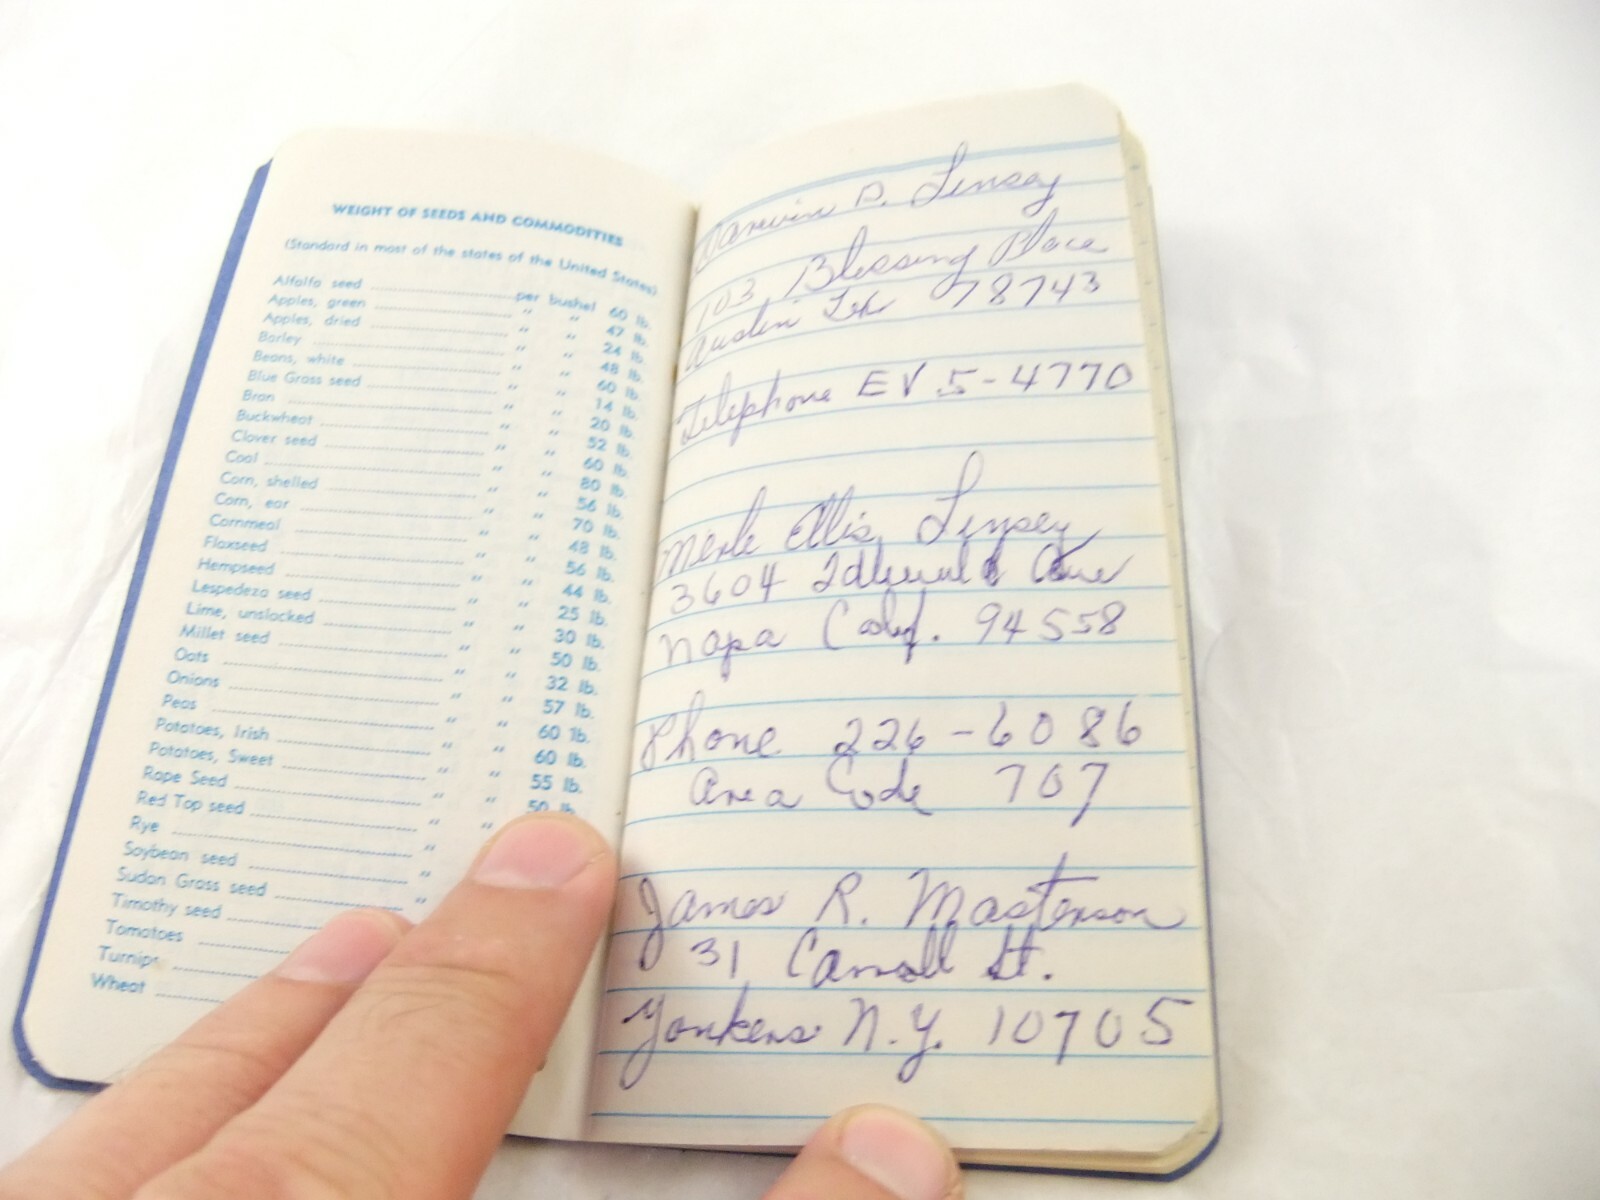 WEIGHT OF SEEDS AND COMMODITIES
(Standard in most of the states of the United States)
Alfalfa seed per bushel 60 lb.
Apples, green " " 47 lb.
Apples, dried " " 24 lb.
Barley " " 48 lb.
Beans, white " " 60 lb.
Blue Grass seed " " 14 lb.
Bran " " 20 lb.
Buckwheat " " 52 lb.
Clover seed " " 60 lb.
Coal " " 80 lb.
Corn, shelled " " 56 lb.
Corn, ear " " 70 lb.
Cornmeal " " 48 lb.
Flaxseed " " 56 lb.
Hempseed " " 44 lb.
Lespedeza seed " " 25 lb.
Lime, unslacked " " 30 lb.
Millet seed " " 50 lb.
Oats " " 32 lb.
Onions " " 57 lb.
Peas " " 60 lb.
Potatoes, Irish " " 60 lb.
Potatoes, Sweet " " 55 lb.
Rape Seed " " 50 lb.
Red Top seed " "
Rye "
Soybean seed "
Sudan Grass seed
Timothy seed
Tomatoes
Turnips
Wheat
Darwin P. Linsey
103 Blessing Place
Austin Tex 78743
Telephone EV 5-4770
Merle Ellis Linsey
3604 Idlewild Ave
Napa Calif. 94558
Phone 226-6086
Area Code 707
James R. Masterson
31 Carroll St.
Yonkers N.Y. 10705